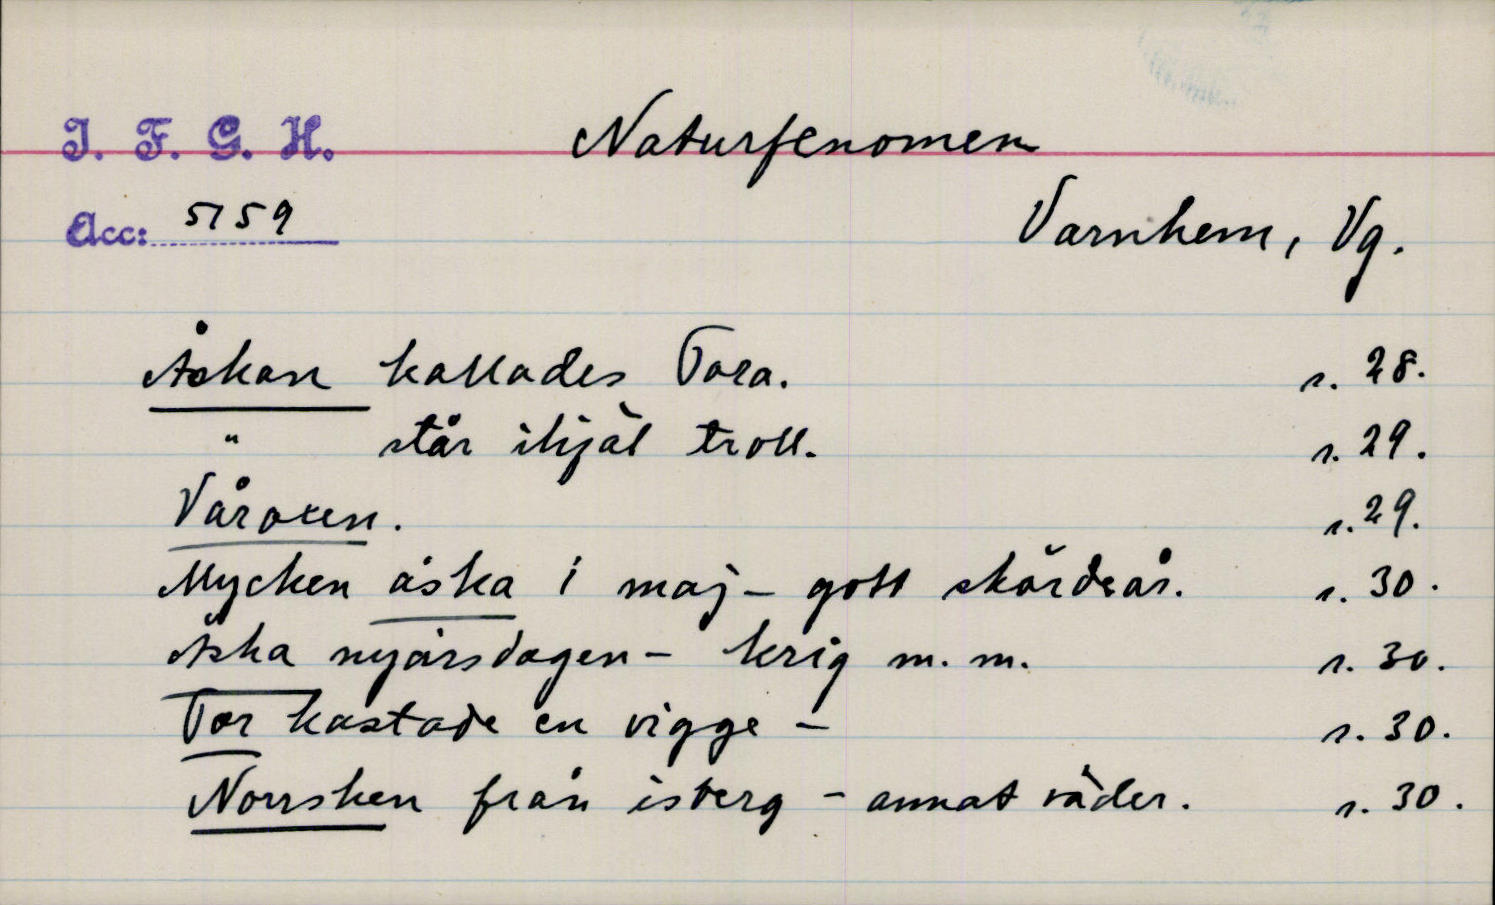 I. F. G. H.
Naturfenomen
Acc: 5159
Varnhem, Vg.
Åskan kallades Tora. s. 28.
" slår ihjäl troll. s. 29.
Våroxen. s. 29.
Mycken åska i maj - gott skördeår. s. 30.
Åska nyårsdagen - krig m. m. s. 30.
Tor kastade en vigge - s. 30.
Norrsken från isberg - annat väder. s. 30.